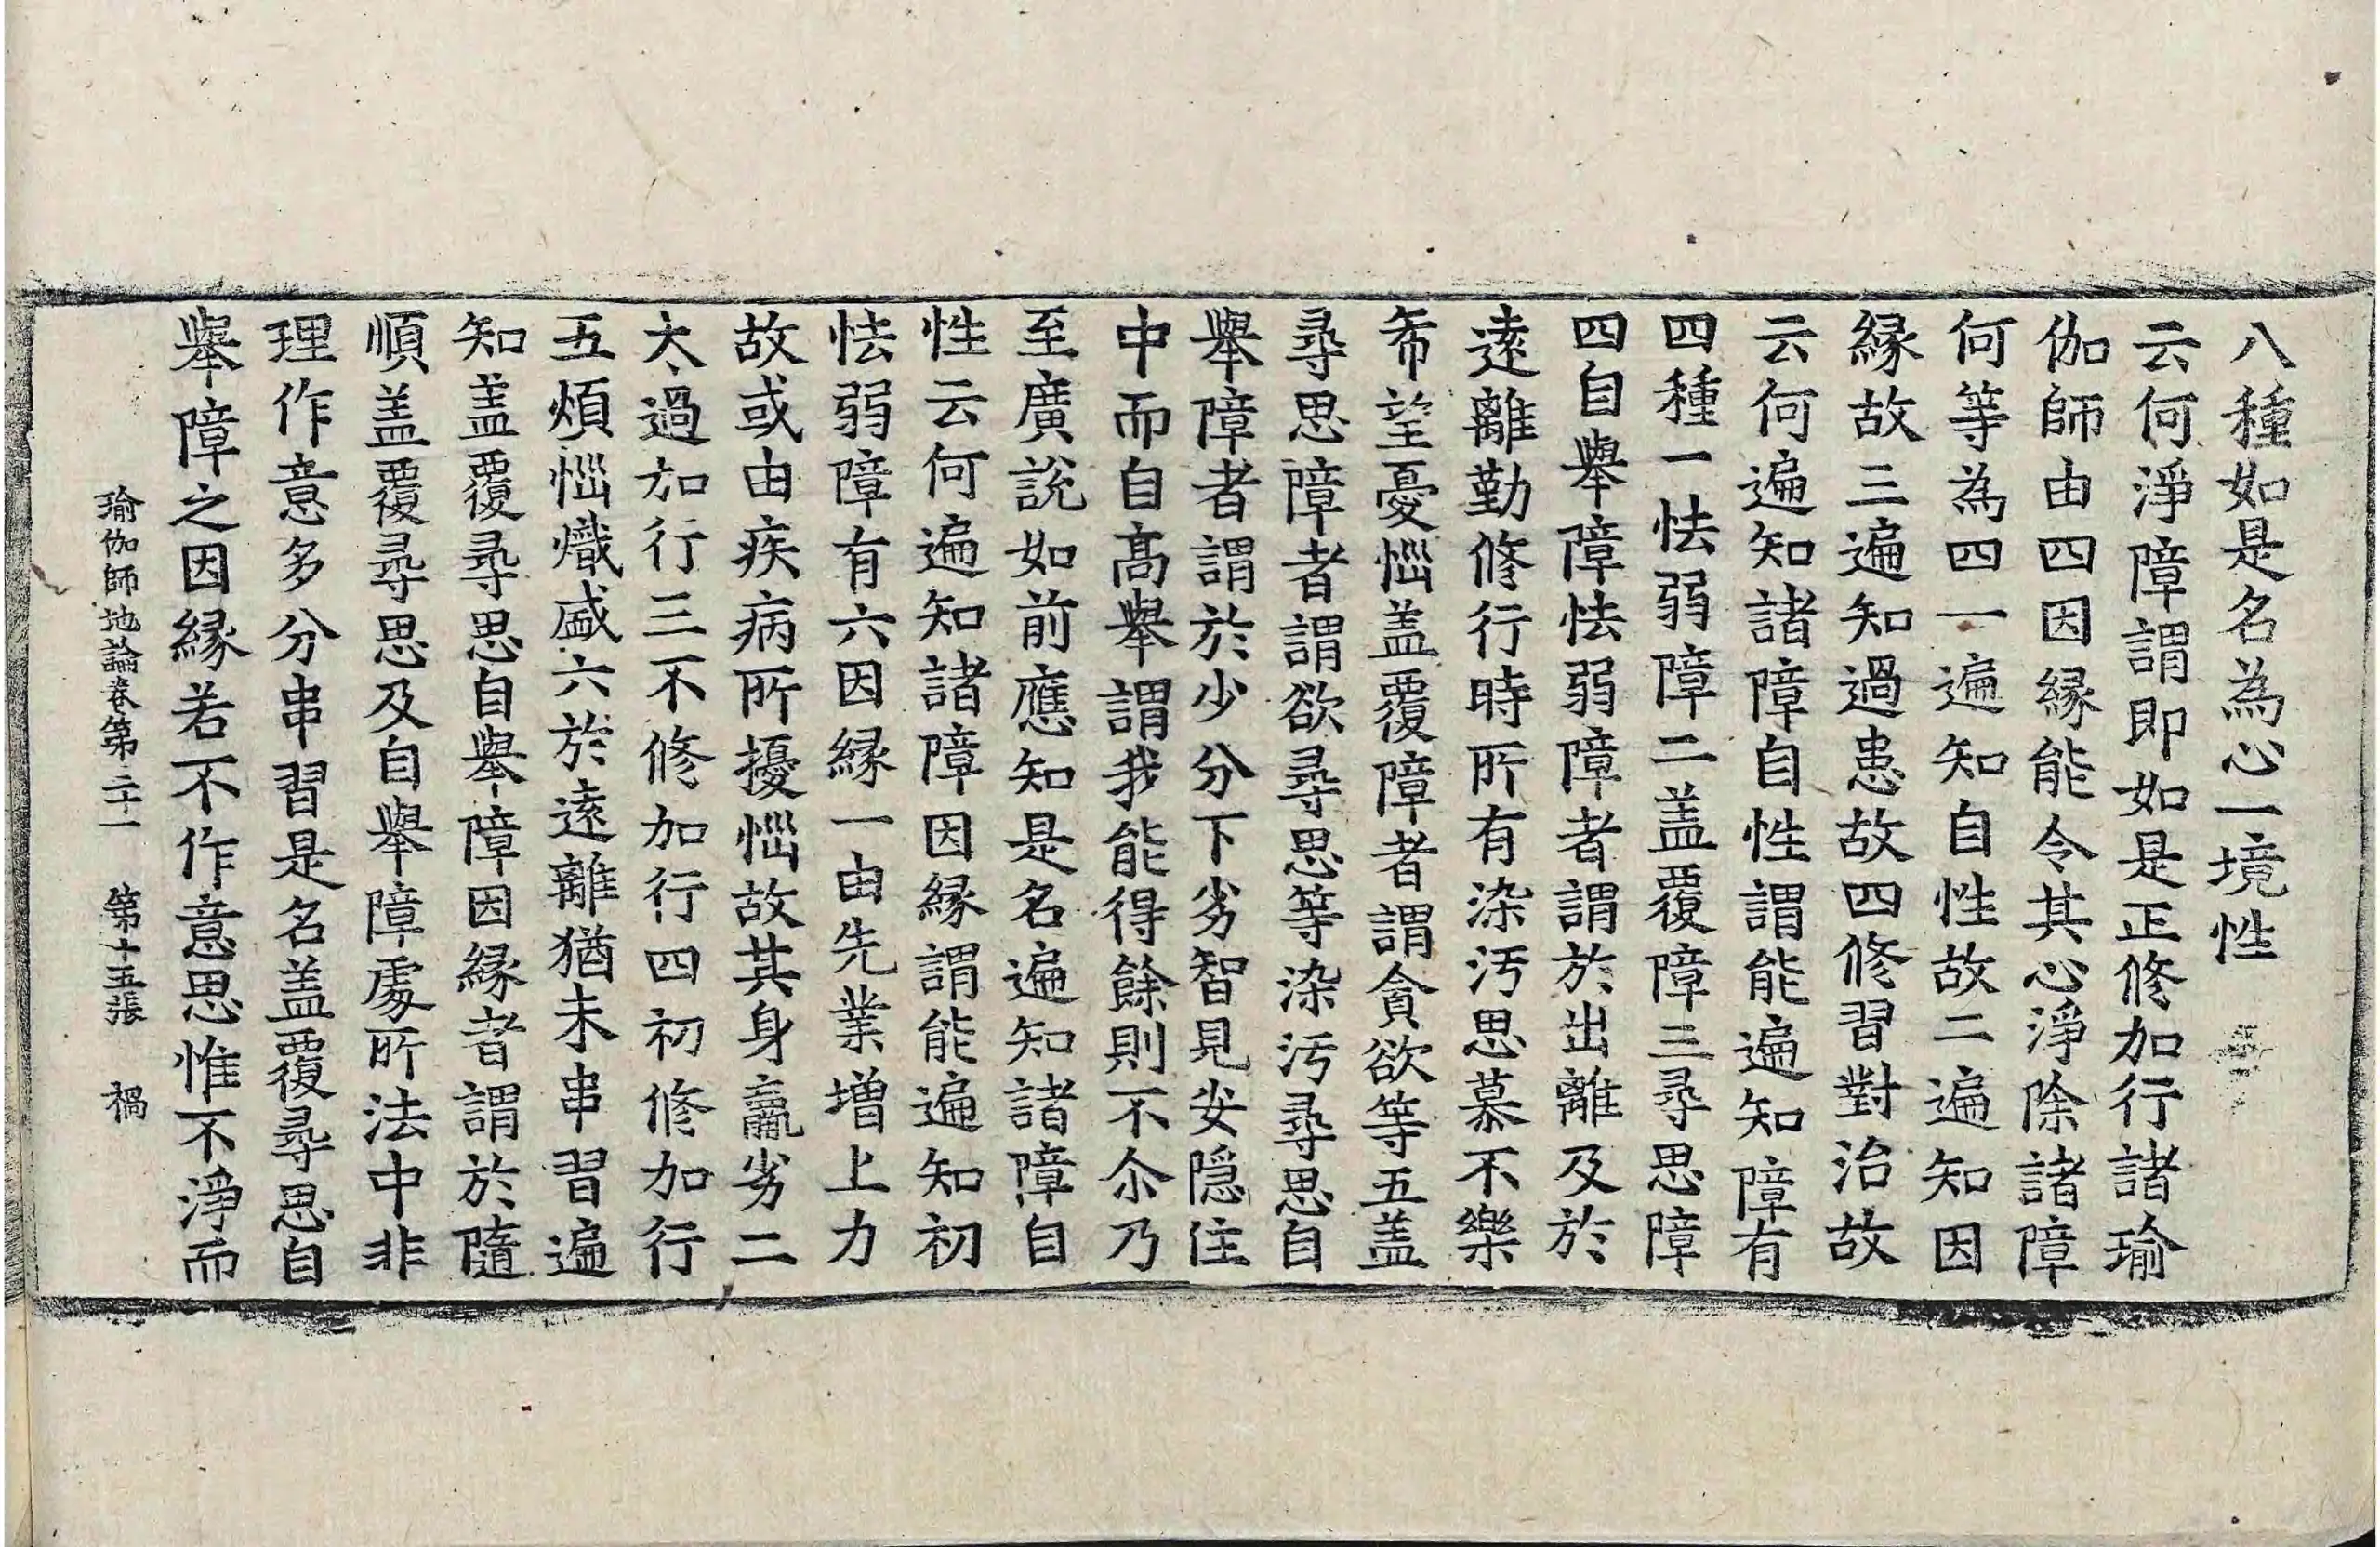 八種如是名為心一境性
云何淨障謂即如是正修加行諸瑜
伽師由四因緣能令其心淨除諸障
何等為四一遍知自性故二遍知因
緣故三遍知過患故四修習對治故
云何遍知諸障自性謂能遍知障有
四種一怯弱障二盖覆障三尋思障
四自舉障怯弱障者謂於出離及於
遠離勤修行時所有染污思慕不樂
希望憂惱盖覆障者謂貪欲等五盖
尋思障者謂欲尋思等染污尋思自
舉障者謂於少分下劣智見安隱住
中而自髙舉謂我能得餘則不尒乃
至廣說如前應知是名遍知諸障自
性云何遍知諸障因緣謂能遍知初
怯弱障有六因緣一由先業增上力
故或由疾病所擾惱故其身羸劣二
太過加行三不修加行四初修加行
五煩惱熾盛六於遠離猶未串習遍
知盖覆尋思自舉障因緣者謂於隨
順盖覆尋思及自舉障處所法中非
理作意多分串習是名盖覆尋思自
舉障之因緣若不作意思惟不淨而
瑜伽師地論卷第三十一 第十五張 禍